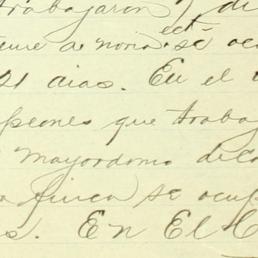 trabajaron y di
ect
de nora se oc
21 dias. En el
peones que traba
Mayordomo de Ca
a finca se ocup
s. En El C